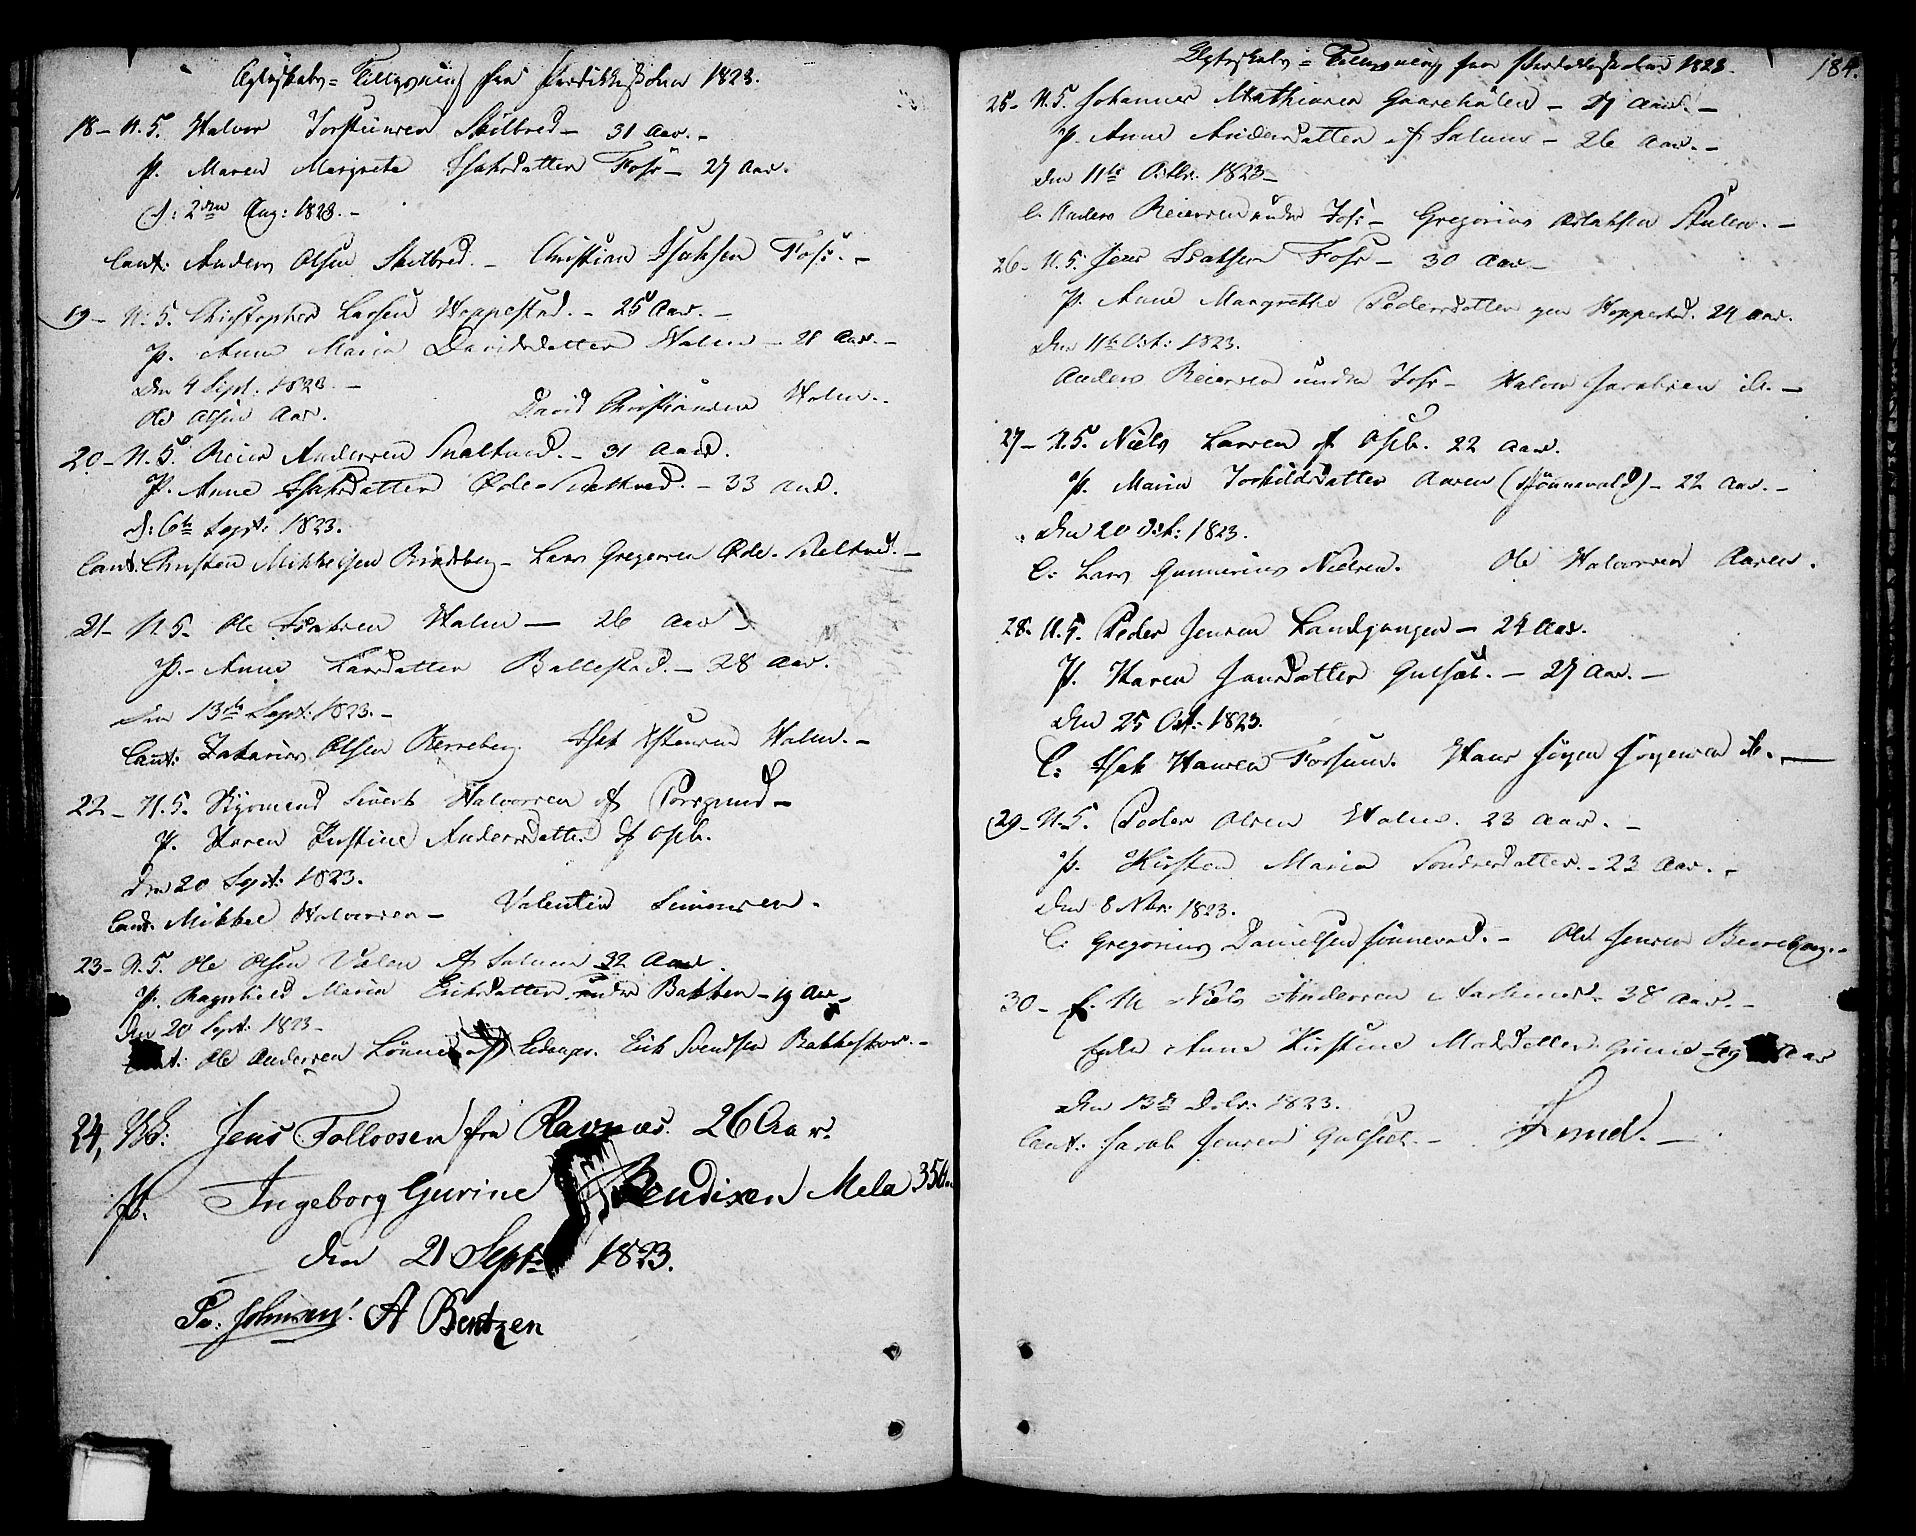 Ægteskabs-Tillysning fra Prædikestolen 1823.
18- U.K. Halvor Torsteinsen Skilbred - 31 Aar.-
P. Maren Margrete Isaksdatter Foss - 27 Aar.
d: 2den Aug: 1823.-
Caut: Anders Olsen Skilbred.- Christian Isaksen Foss.-
19- U.K. Christopher Larsen Hoppestad.- 25 Aar.-
P. Anne Maria Davidsdatter Holm - 21 Aar.-
den 4 Sept: 1823.-
Ole Olsen Aar. David Christiansen Holm.
20- U.K. Reier Andersen Snaltved.- 31 Aar.
P. Anne Isaksdatter Øde-Kaltved.- 33 Aar.
d: 6te Sept: 1823.
Caut: Christen Mikkelsen Bredsberg - Lars Gregersen Øde-
21- U.K. Ole Isaksen Holm - 26 Aar.-
P.- Anne Larsdatter Ballestad.- 28 Aar.
Den 13de Sept: 1823.-
Caut: Zakarias Olsen Berreberg. Isak Holm.-
22- U.K. Styrmand Sivert Halvorsen af Porsgrund -
P. Karen Kirstine Andersdatter af Osb.
den 20 Sept: 1823.
Caut. Mikkel Halvorsen - Valentin Simonsen.
23- U.K. Ole Olsen Valen af Solum 32 Aar.
P. Ragnhild Maria Eriksdatter under Bakken - 19 Aar
den 20 Sept: 1823-
Caut: Ole Andersen Lønne af Eidanger. Erik Svendsen Bakkestran.-
24, UK: Jens Tollvosen fra Ravnæs. 26 Aar.
P. Ingeborg Gurine Bendixen Mela 35 A.
den 21 Sept. 1823.
Pv: Johnsen! A Bentzen
Ægteskabs-Tillysning fra Prædikestolen 1823. 184.
25- U.K. Johannes Mathiesen Gaareholen - 27 Aar.-
P. Anne Andersdatter af Solum - 26 Aar.-
den 11te Octbr. 1823-
C. Anders Reiersen under Foss - Gregorius Aslaksen Stulen.-
26- U.K. Jens Isaksen Foss - 30 Aar-
P. Anne Margrethe Pedersdatter Hoppestad. 24 Aar.
den 11te Oct: 1823.
Anders Reiersen under Foss - Halvor Jacobsen ib.-
27- U.K. Niels Larsen af Osb. 22 Aar.
P. Maria Torkildsdatter Aaren (Hønnevald) - 22 Aar.-
den 20 Oct: 1823.
C: Lars Gunnerius Nielsen. Ole Halvorsen Aaren.
28- U.K. Peder Jensen Landgangen - 24 Aar.
P. Karen Jensdatter Gulset.- 27 Aar.-
den 25 Oct: 1823.
C: Isak Hansen Fossum. Hans Jørgen Jørgensen ib.-
29- U.K. Peder Olsen Holm. 23 Aar.-
P. Kirsten Maria Sondresdatter.- 23 Aar.-
den 8 Nbr: 1823.
C: Gregorius Danielsen Hønnevald.- Ole Jensen Berreberg.-
30- E.M. Niels Andersen - 38 Aar.-
Enke Anne Kirstine Madsdatter Aar
den 13de Decbr: 1823.
Caut: Jacob Jensen Gulset.- Lund.-